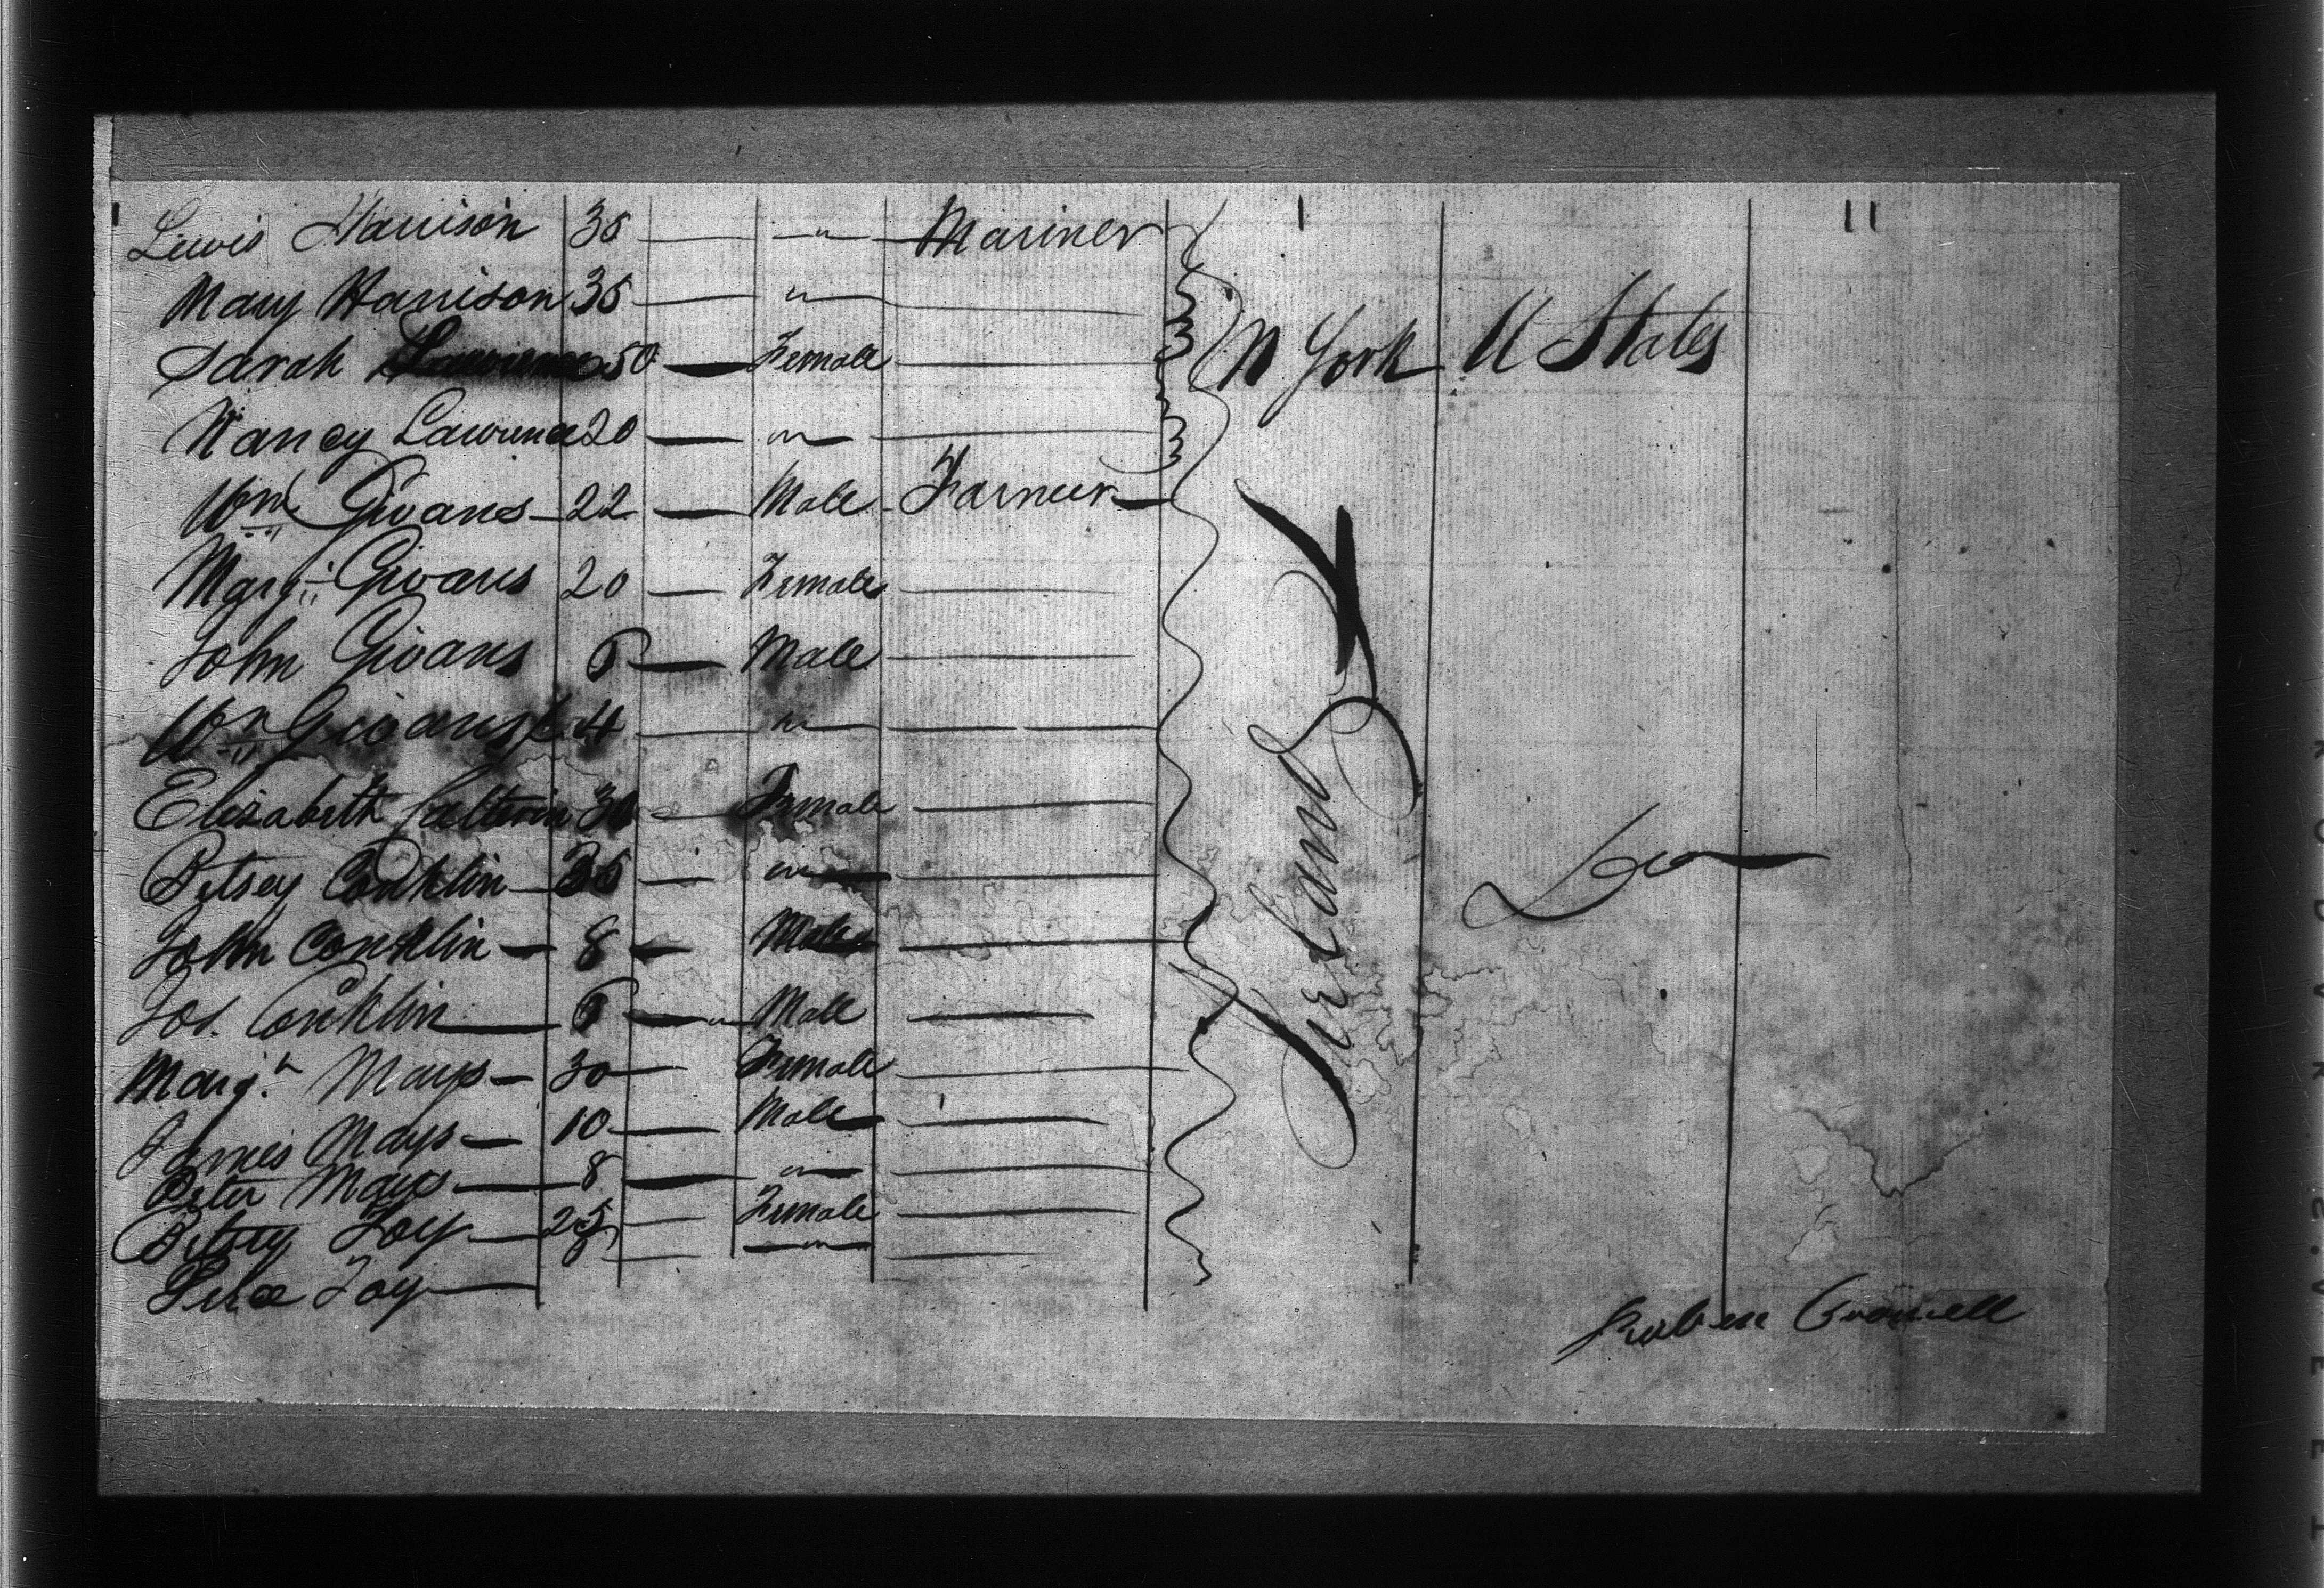 Lewis Harrison 35 — " — Mariner
Mary Harrison 35 — " —
Sarah Lawrence 50 — Female —
Nancy Lawrence 20 — " —
N York U States
Wm Givans — 22 — Male — Farmer —
Margt Givans 20 — Female —
John Givans 6 — Male —
Wm Givans 4 — " —
Elizabeth 30 — Female —
Betsey Conklin — 36 — " —
John Conklin — 8 — Male —
Jos. Conklin — 6 — Male —
Ireland Do —
Margt Mays — 30 — Female —
James Mays — 10 — Male —
Peter Mays — 8 — " —
Betsey Foy — 25 — Female —
Foy — 8 — " —
Crowell